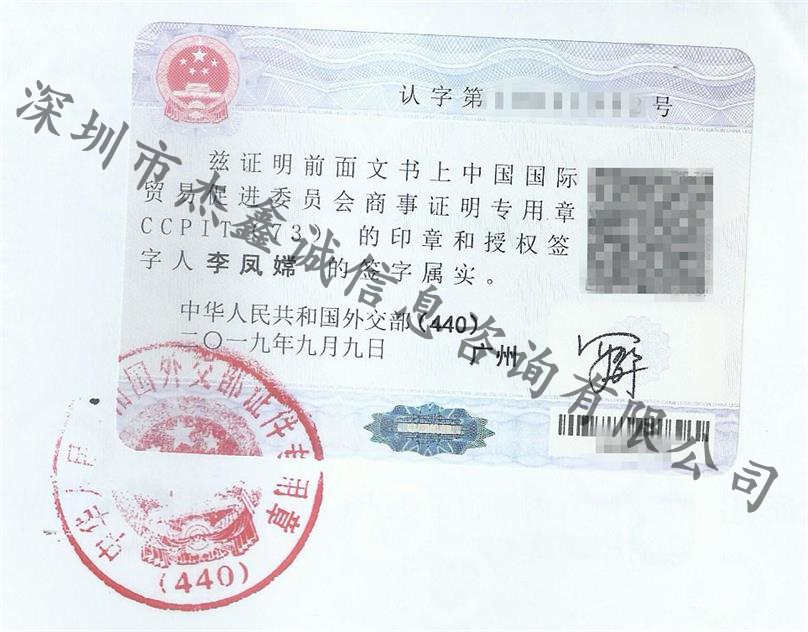 认字第
号
兹证明前面文书上中国国际
贸易促进委员会商事证明专用章
CCPIT 73 的印章和授权签
字人李凤嫦的签字属实。
中华人民共和国外交部(440)
二〇一九年九月九日
广州
深圳市杰鑫诚信息咨询有限公司
和国外交部证件专用章
(440)